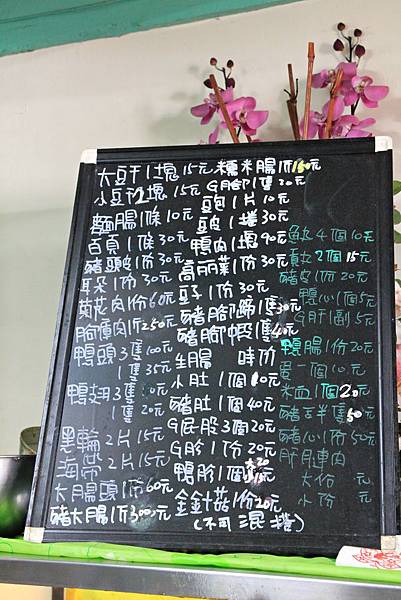 大豆干1塊15元
小豆干1塊15元
麵腸1條10元
百頁1條30元
豬頭皮1份30元
耳朵1份30元
菊花肉1份60元
胸連肉1斤250元
鴨頭3隻100元
1隻35元
鴨翅3隻
1隻20元
黑輪2片15元
海帶2片15元
大腸頭1份60元
豬大腸1斤300元
糯米腸1斤150元
G腳1隻20元
豆包1片10元
豆皮1捲30元
鴨肉1塊90元
高麗菜1份30元
豆子1份30元
豬腳蹄1隻30元
豬腳中段1隻40元
生腸 時价
小肚1個10元
豬肚1個40元
G屁股3個20元
G肫1份20元
鴨肫1個20元
金針菇1份20元
(不可混搭)
魚丸4個10元
貢丸2個15元
豬皮1份20元
鴨心1個5元
G肝1副5元
鴨腸1份20元
蛋一個10元
米血1個20元
豬舌半隻50元
豬心1份50元
肝連肉
大份 元
小份 元